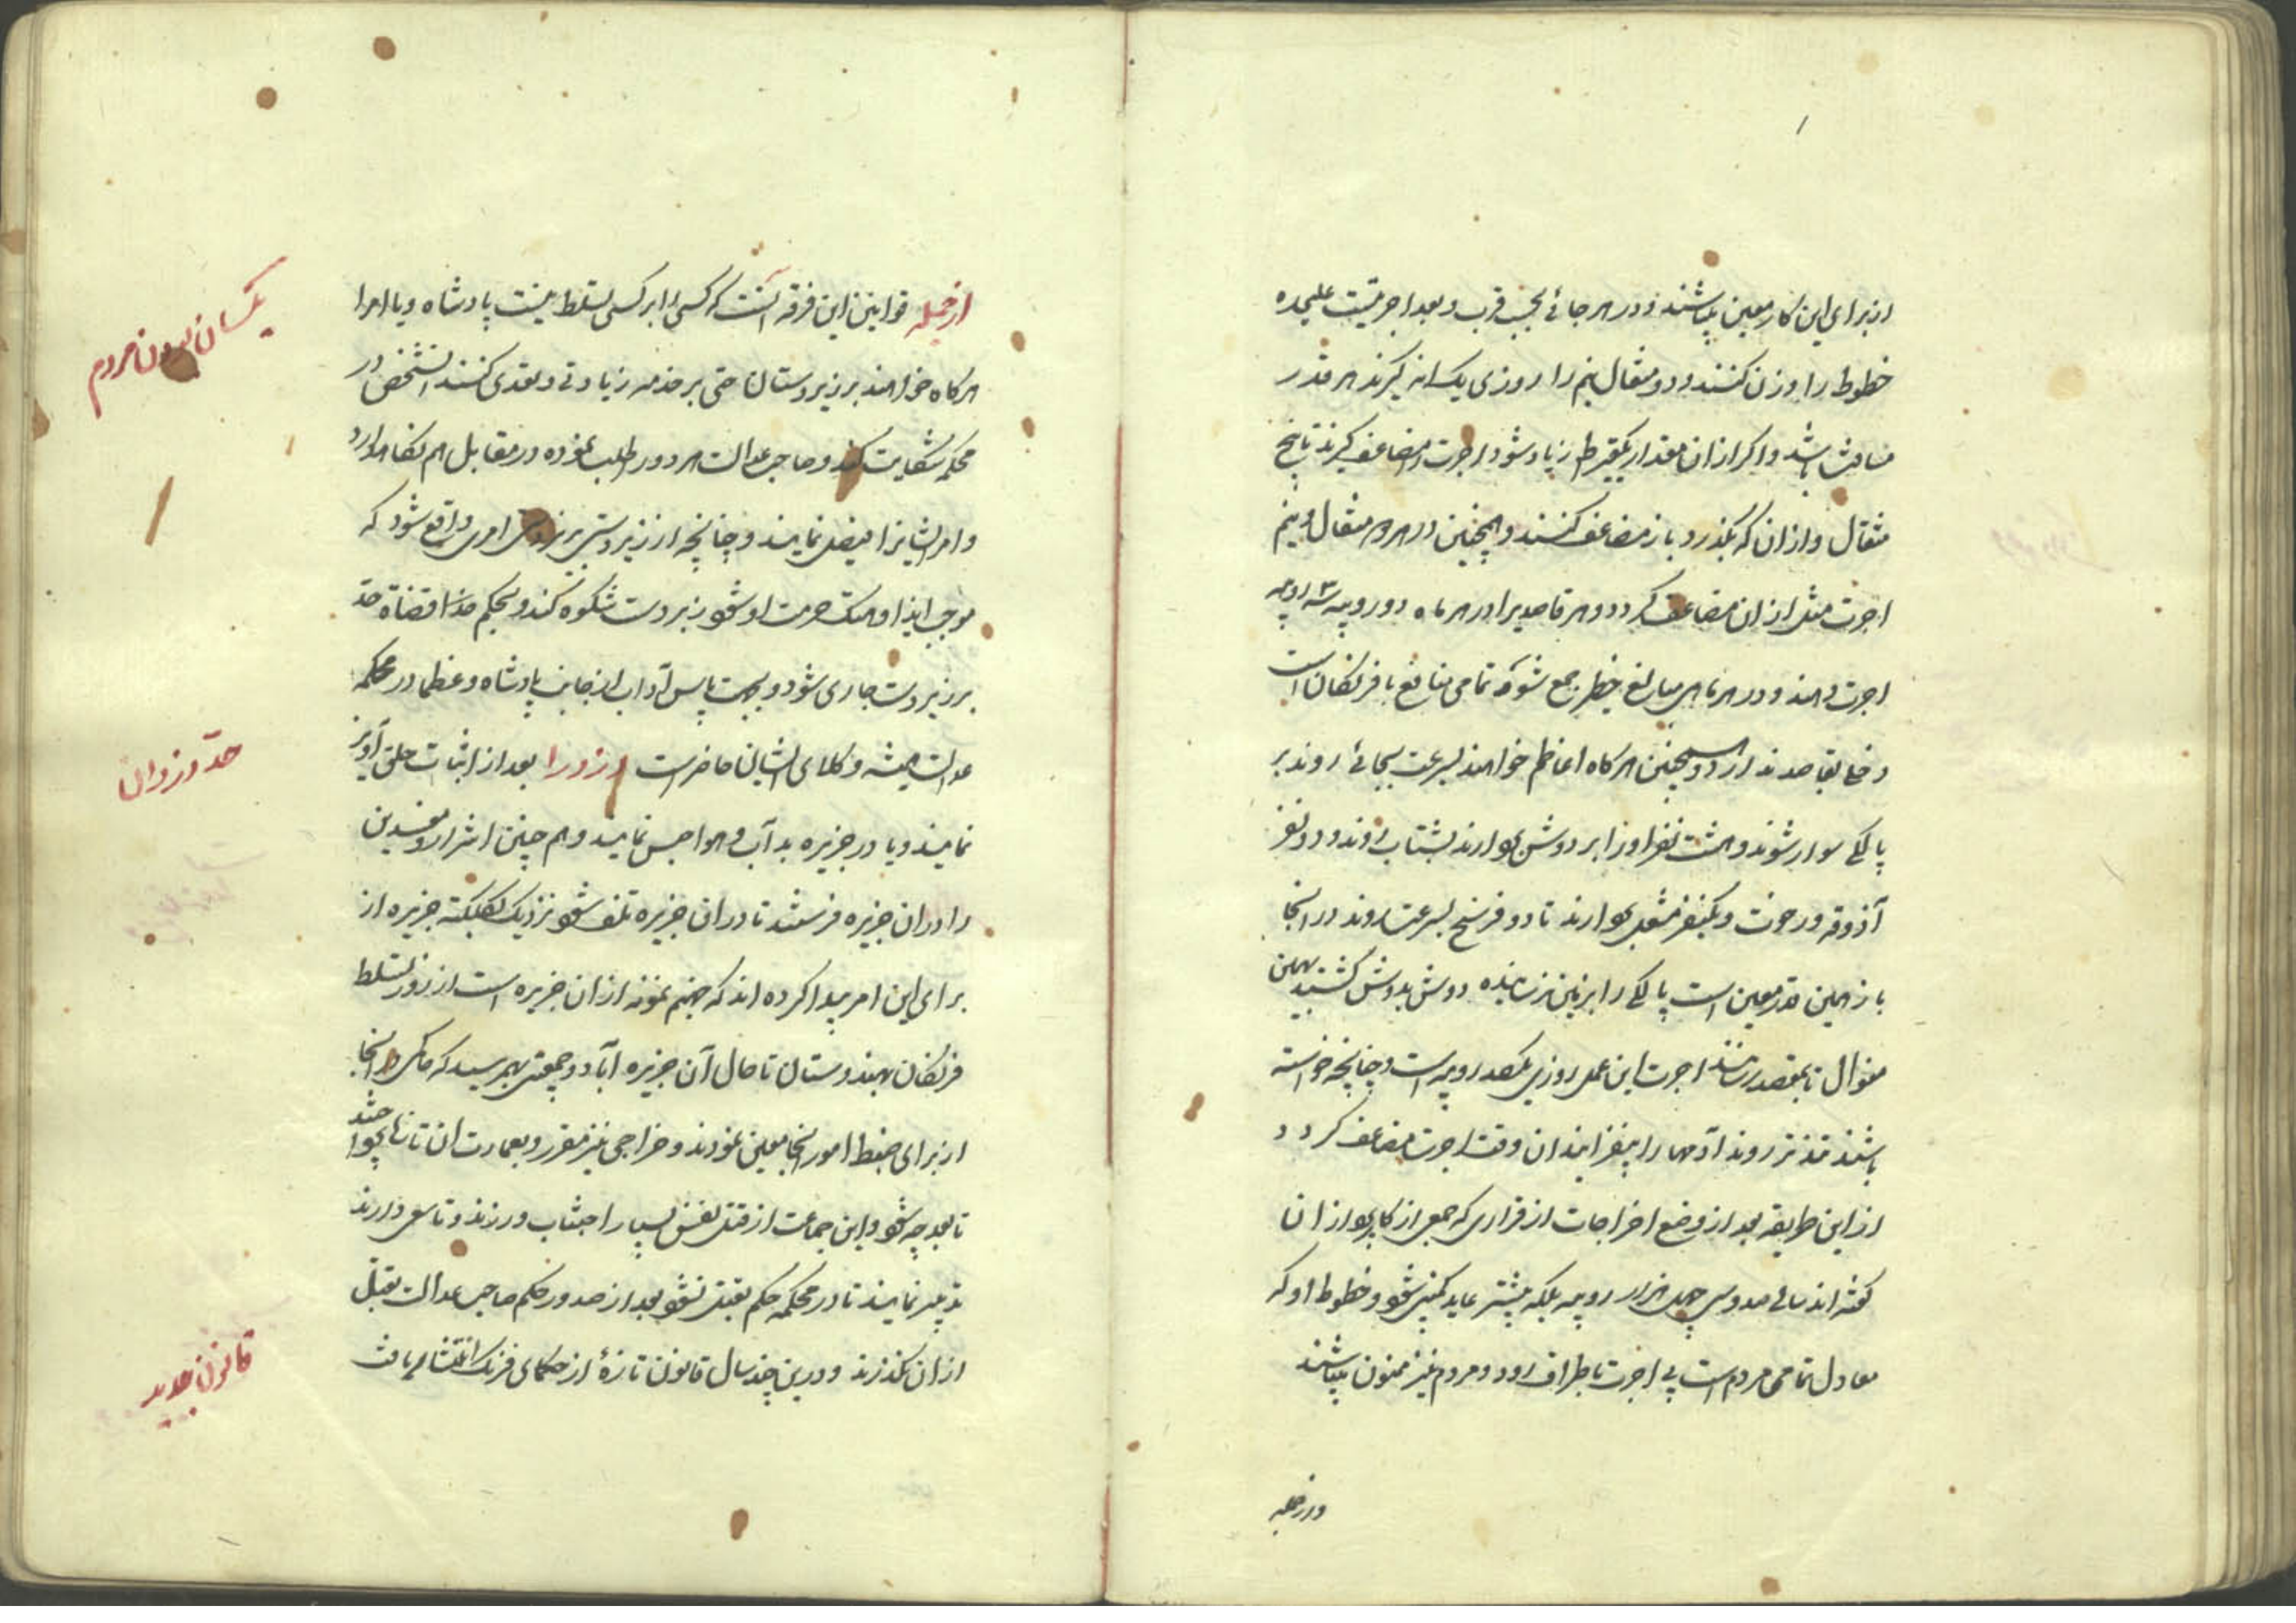 از برای این کار معین میباشند و در هر جائی بحسب قرب و بعد اجرتیست علیحده
خطوط را وزن کنند و دو مثقال نیم را روزی یک انه گیرند هر قدر
مسافت باشد و اگر از ان مقدار یکقیراط زیاد شود اجرت را مضاعف گیرند تا پنج
مثقال و از ان که بگذرد باز مضاعف کنند و همچنین در هر دو مثقال و نیم
اجرت مثل از ان مضاعف گردد و هر قاصدیرا در هر ماه دو روپیه سه روپیه
اجرت دهند و در هر ماهی مبالغ خطیر جمع شود که تمامی منافع با فرنگان است
دخلی بقاصد ندارد و همچنین هر گاه اعاظم خواهند بسرعت بجائی روند بر
پالکی سوار شوند و هشت نفر او را بر دوش بردارند بشتاب روند و دو نفر
آذوقه و رخوت و یکنفر مشعل بردارند تا دو فرسخ بسرعت روند در انجا
باز همین قدر معین است پالکی را بزمین نرسانیده دوش بدوش کشند بهمین
منوال تا بمقصد رسانند اجرت این عمل روزی یکصد روپیه است و چنانچه خواسته
باشند تندتر روند آدمها را بیفزایند ان وقت اجرت مضاعف گردد
از این طریقه بعد از وضع اخراجات از قراری که جمعی از کاپردازان
گفته اند سالی صد و سی چهل هزار روپیه بلکه بیشتر عاید کمپنی شود و خطوط او که
معادل تمامی مردم است بی اجرت باطراف رود و مردم نیز ممنون میباشند
از جمله قوانین این فرقه آنست که کسی را بر کسی تسلط نیست پادشاه و یا امرا
هر گاه خواهند بر زیردستان حتی بر خدمه زیادتی و تعدی کنند انشخص در
محکمه شکایت کند و صاحب عدالت هر دو را طلب نموده در مقابل هم نگاه دارد
و امر ایشانرا فیصل نمایند و چنانچه از زیردستی بر زبردستی امری واقع شود که
موجب ایذا و هتک حرمت او شود زبردست شکوه کند و بحکم قضاة حد
بر زیردست جاری شود و بجهت پاس آداب از جانب پادشاه و عظما در محکمه
عدالت همیشه وکلای ایشان حاضر است دزد را بعد از اثبات حلق آویز
نمایند و یا در جزیره بد آب و هوا حبس نمایند و هم چنین اشرار و مفسدین
را در ان جزیره فرستند تا در ان جزیره تلف شود نزدیک بکلکته جزیره از
برای این امر پیدا کرده اند که جهنم نمونه از ان جزیره است از روز تسلط
فرنگان بهندوستان تا حال آن جزیره آباد و جمعیتی بهمرسید که حاکمی در انجا
از برای ضبط امور انجا معین نمودند و خراجی نیز مقرر و بعمارت ان تا نهایت پرداختند
تا بعد چه شود و این جماعت از قتل نفس بسیار اجتناب ورزند و تا سعی دارند
تدبیر نمایند تا در محکمه حکم بقتل نشود بعد از صدور حکم صاحب عدالت بقتل
از ان نگذرند و در این چند سال قانون تازهٔ از حکمای فرنگ انتشار یافت
یکسان بودن مردم
حد دزدان
قانون جدید